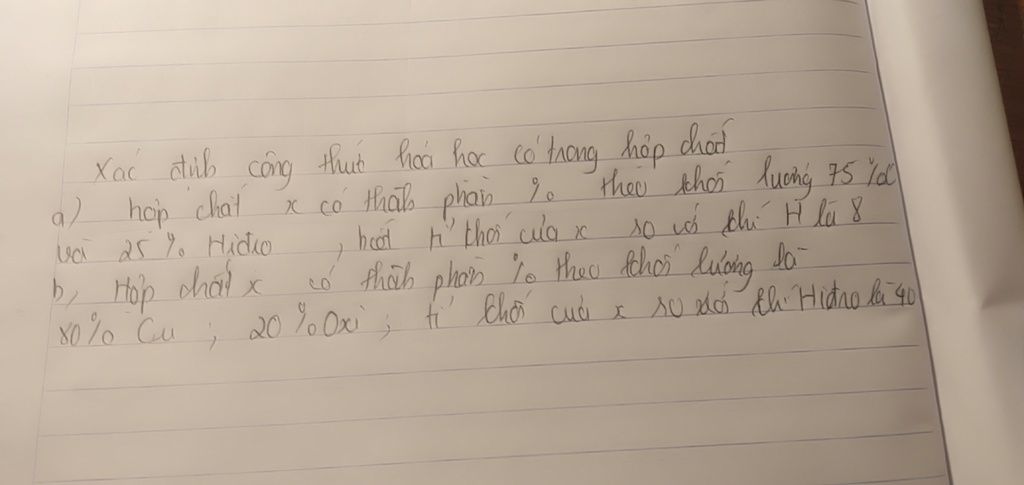 Xác định công thức hoá học có trong hợp chất
a) hợp chất x có thành phần % theo khối lượng 75%C
và 25% Hiđro , biết tỉ khối của x so với khí H là 8
b, Hợp chất x có thành phần % theo khối lượng là
80% Cu ; 20% Oxi ; tỉ khối của x so với khí Hiđro là 40